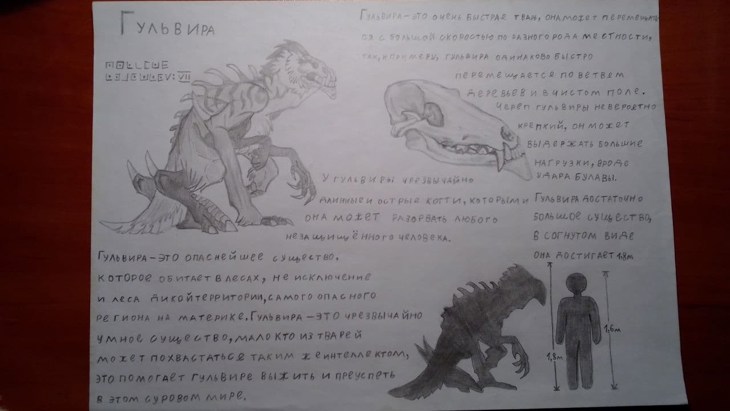 Гульвира
VII
Гульвира-это очень быстрая тварь, она может перемещать
ся с большой скоростью по разного рода местности,
так, к примеру, гульвира одинаково быстро
перемещается по ветвям
деревьев и в чистом поле.
Череп гульвиры невероятно
крепкий, он может
выдержать большие
нагрузки, вроде
удара булавы.
У гульвиры чрезвычайно
длинные и острые когти, которыми
она может разорвать любого
незащищённого человека.
Гульвира достаточно
большое существо,
в согнутом виде
она достигает 1,8м
Гульвира-это опаснейшее существо.
которое обитает в лесах, не исключение
и леса дикой территории, самого опасного
региона на материке. Гульвира-это чрезвычайно
умное существо, мало кто из тварей
может похвастаться таким же интеллектом,
это помогает гульвире выжить и преуспеть
в этом суровом мире.
1,8м
1,6м